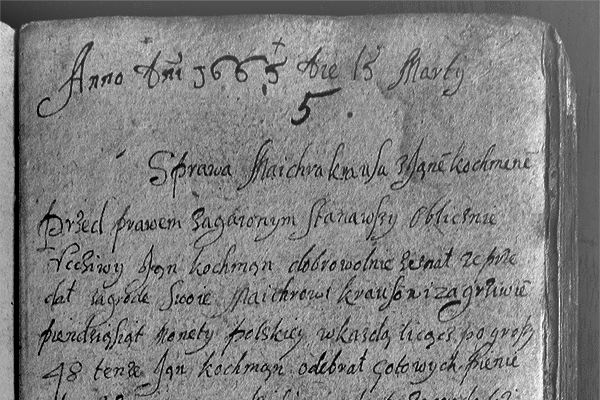 Anno Dni 1665 Die 15 Marty
5.
Sprawa Maichra krausa z Janē kochmenē
Przed prawem zagaionym stanawszy obliesnie
Vcciwy Jan kochman dobrowolnie zeznał ze prze
dał zagrode swoie Maichrowi krausowi za grziwiē
piendziesiąt monety polskiey w kazdą licząc po groszy
48 tenze Jan kochman odebrał gotowych pienie